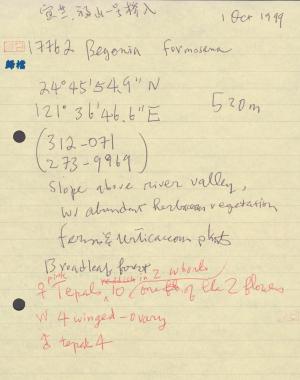 宜蘭, 福山一号橋入
1 Oct 1999
歸檔
17762 Begonia formosana
24°45'54.9"N
121°36'46.6"E
520m
312-071
273-9969
Slope above river valley,
w/ abundant herbaceous vegetation
ferns & Urticaceous plants
Broadleaf forest
pink in 2 whorls
♀ Tepals 10 / one of the 2 flowers
w 4 winged-ovary
♂ tepal 4